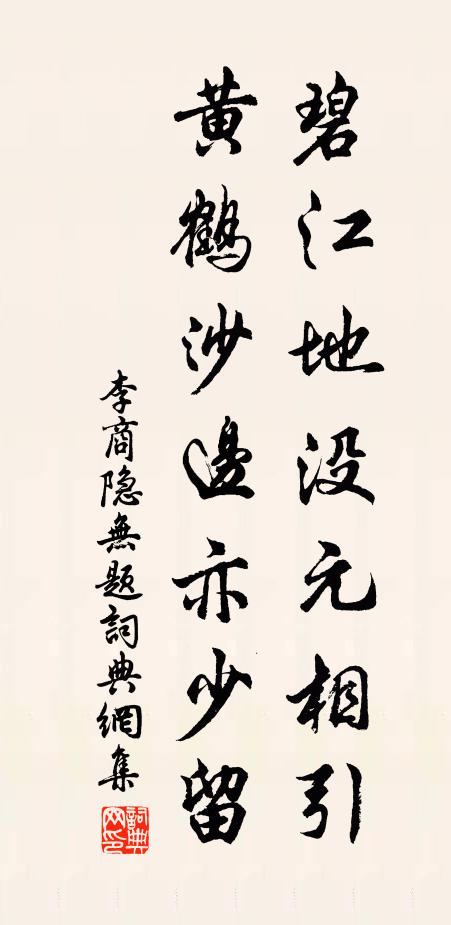 碧江地没元相引
黄鶴沙邊亦少留
李商隐無题詞典網集
詞典網印